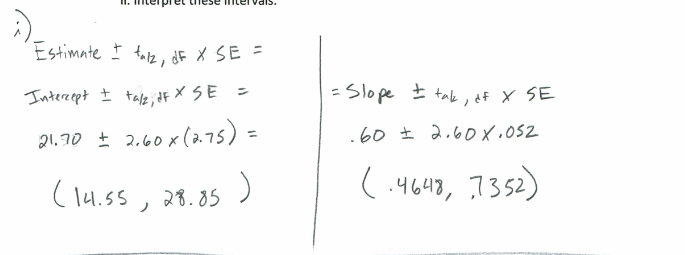 II. Interpret these intervals.
i)
Estimate ± tα/2, df × SE =
Intercept ± tα/2, df × SE =
21.70 ± 2.60 × (2.75) =
(14.55, 28.85)
= Slope ± tα/2, df × SE
.60 ± 2.60 × .052
(.4648, .7352)